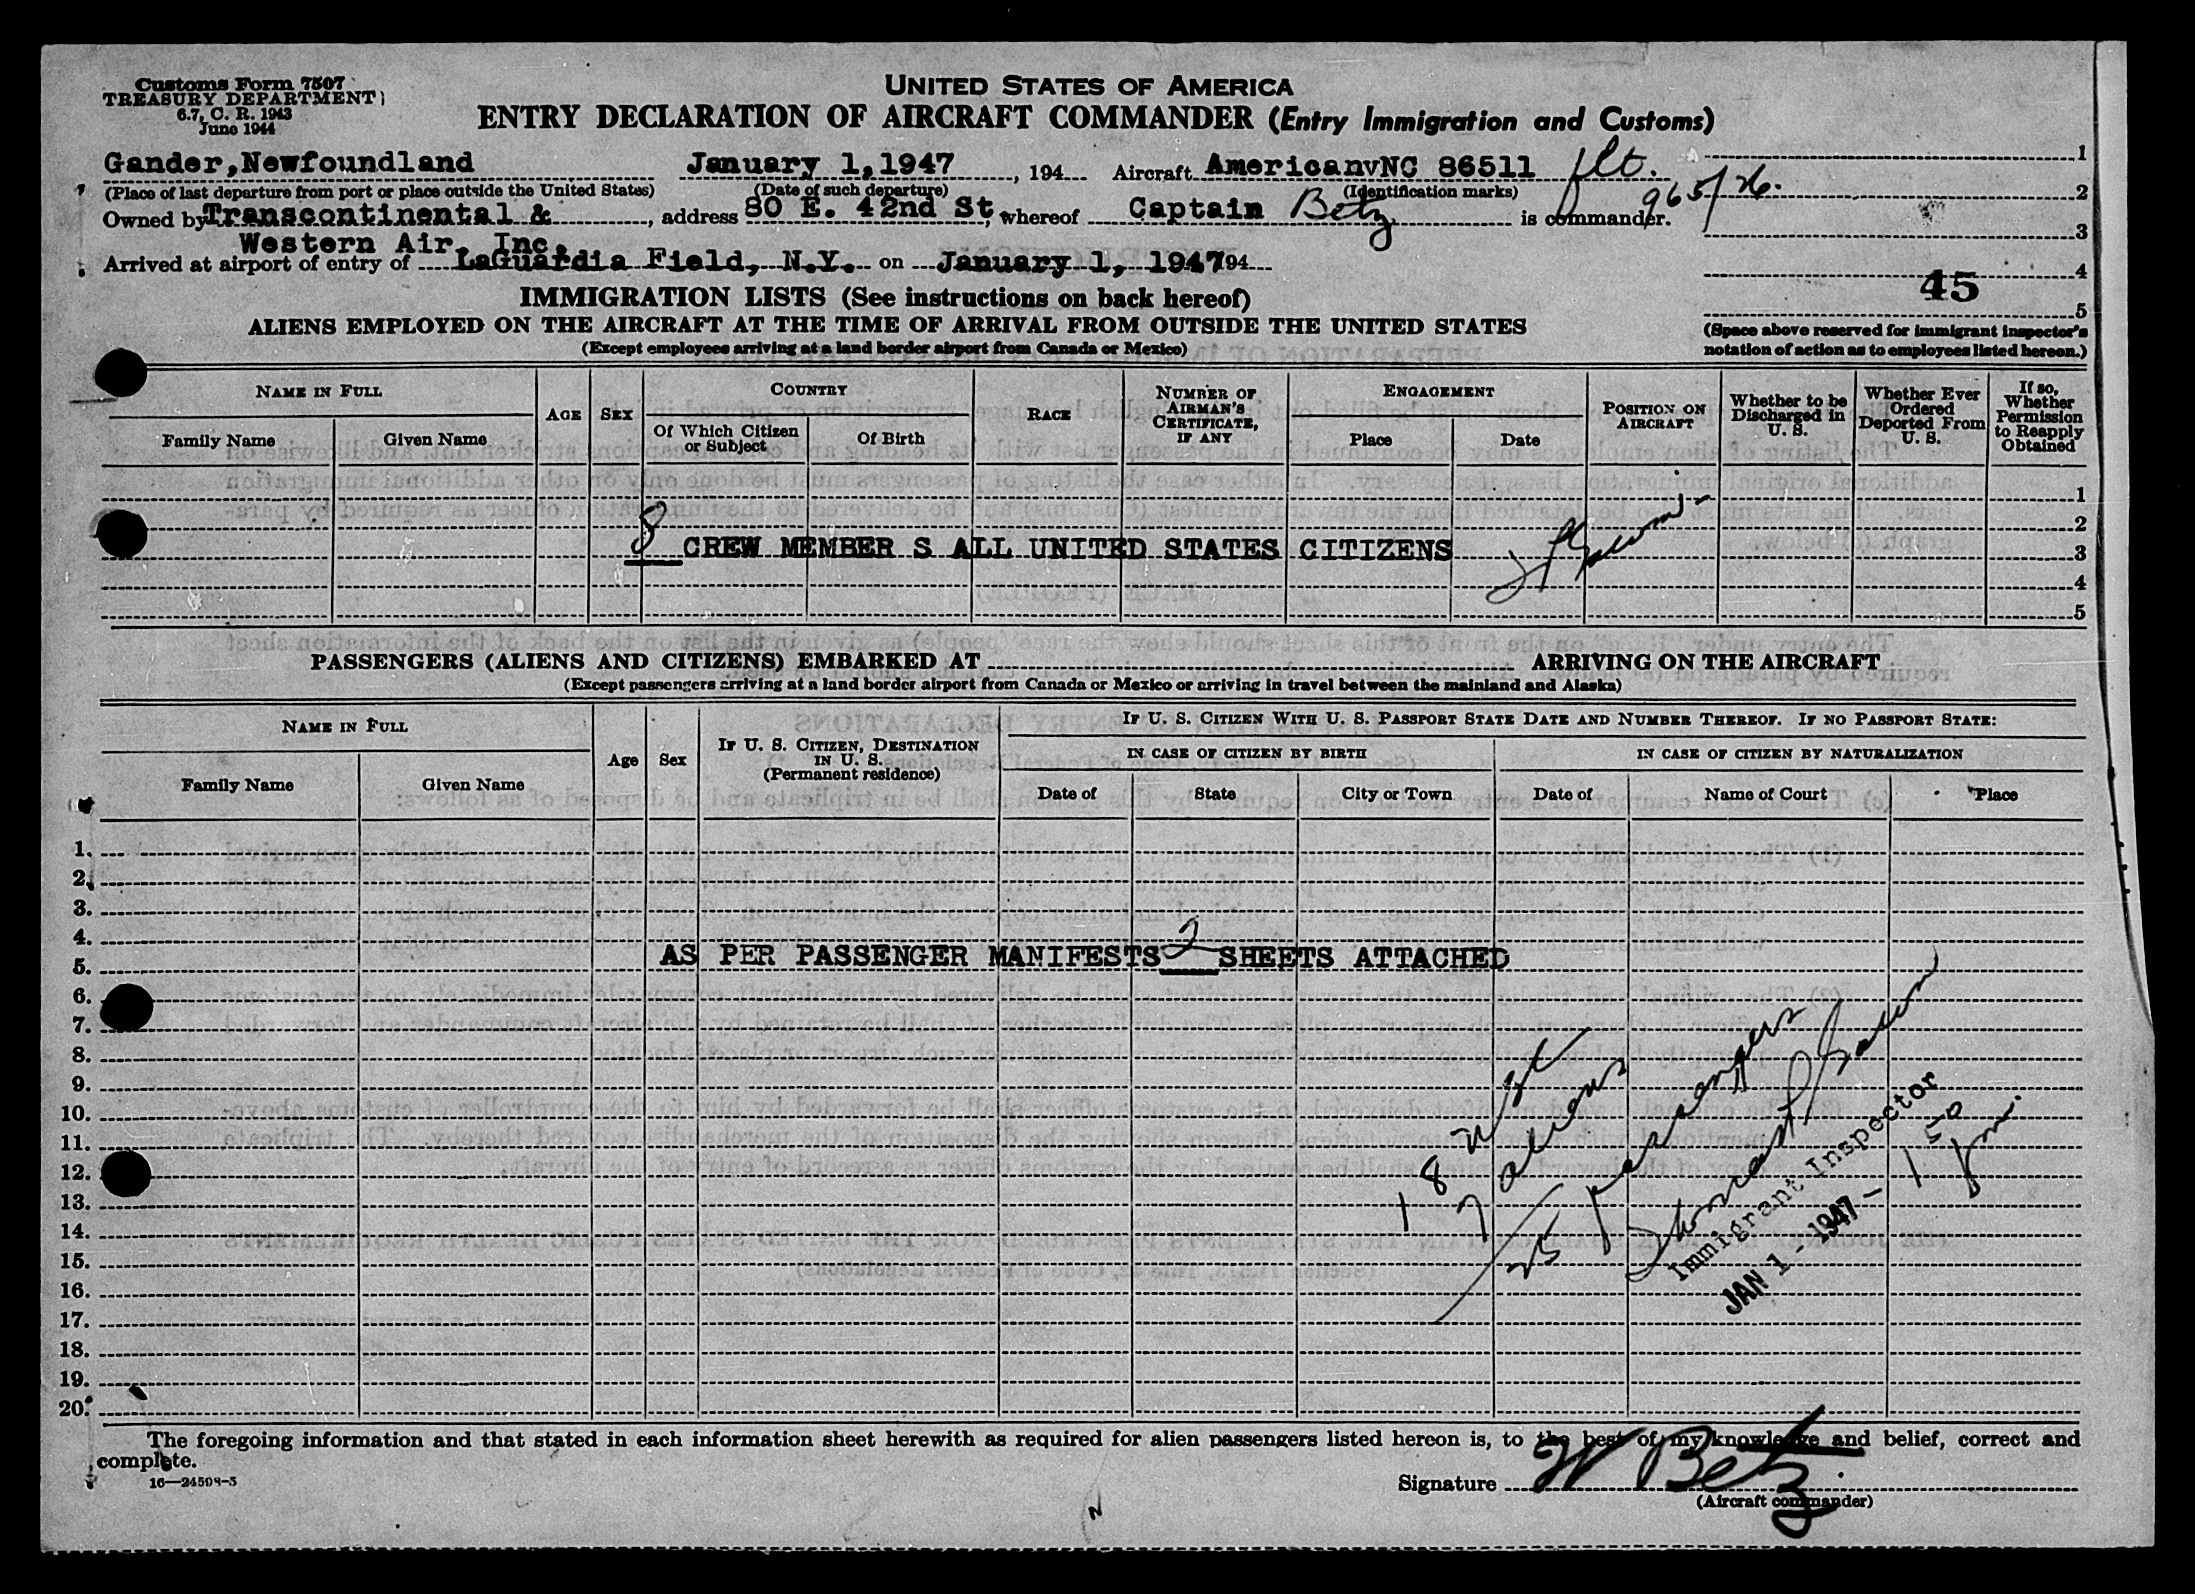 Customs Form 7507
TREASURY DEPARTMENT
6.7, C. R. 1943
June 1944
UNITED STATES OF AMERICA
ENTRY DECLARATION OF AIRCRAFT COMMANDER (Entry Immigration and Customs)
Gander,Newfoundland January 1,1947, 194 Aircraft AmericanvNC 86511 flt. 965/26.
(Place of last departure from port or place outside the United States) (Date of such departure) (Identification marks)
Owned by Transcontinental & Western Air, Inc., address 80 E. 42nd St, whereof Captain Betz is commander.
Arrived at airport of entry of LaGuardia Field, N.Y. on January 1, 1947 194
1
2
3
4
5
45
IMMIGRATION LISTS (See instructions on back hereof)
ALIENS EMPLOYED ON THE AIRCRAFT AT THE TIME OF ARRIVAL FROM OUTSIDE THE UNITED STATES
(Except employees arriving at a land border airport from Canada or Mexico)
(Space above reserved for immigrant inspector's
notation of action as to employees listed hereon.)
NAME IN FULL
Family Name
Given Name
AGE
SEX
COUNTRY
Of Which Citizen or Subject
Of Birth
RACE
NUMBER OF AIRMAN'S CERTIFICATE, IF ANY
ENGAGEMENT
Place
Date
POSITION ON AIRCRAFT
Whether to be Discharged in U. S.
Whether Ever Ordered Deported From U. S.
If so, Whether Permission to Reapply Obtained
1
2
8 CREW MEMBER S ALL UNITED STATES CITIZENS 3
4
5
PASSENGERS (ALIENS AND CITIZENS) EMBARKED AT ARRIVING ON THE AIRCRAFT
(Except passengers arriving at a land border airport from Canada or Mexico or arriving in travel between the mainland and Alaska)
NAME IN FULL
Family Name
Given Name
Age
Sex
IF U. S. CITIZEN, DESTINATION IN U. S.
(Permanent residence)
IF U. S. CITIZEN WITH U. S. PASSPORT STATE DATE AND NUMBER THEREOF. IF NO PASSPORT STATE:
IN CASE OF CITIZEN BY BIRTH
Date of
State
City or Town
IN CASE OF CITIZEN BY NATURALIZATION
Date of
Name of Court
Place
1.
2.
3.
4.
AS PER PASSENGER MANIFESTS 2 SHEETS ATTACHED
5.
6.
7.
8.
9.
10.
11.
12.
13.
14.
15.
16.
17.
18.
19.
20.
18 USC
7 aliens
25 passengers
Immigrant Inspector
JAN 1 - 1947 - 1 50 pm.
The foregoing information and that stated in each information sheet herewith as required for alien passengers listed hereon is, to the best of my knowledge and belief, correct and
complete.
16—24598-3
Signature W Betz
(Aircraft commander)
N